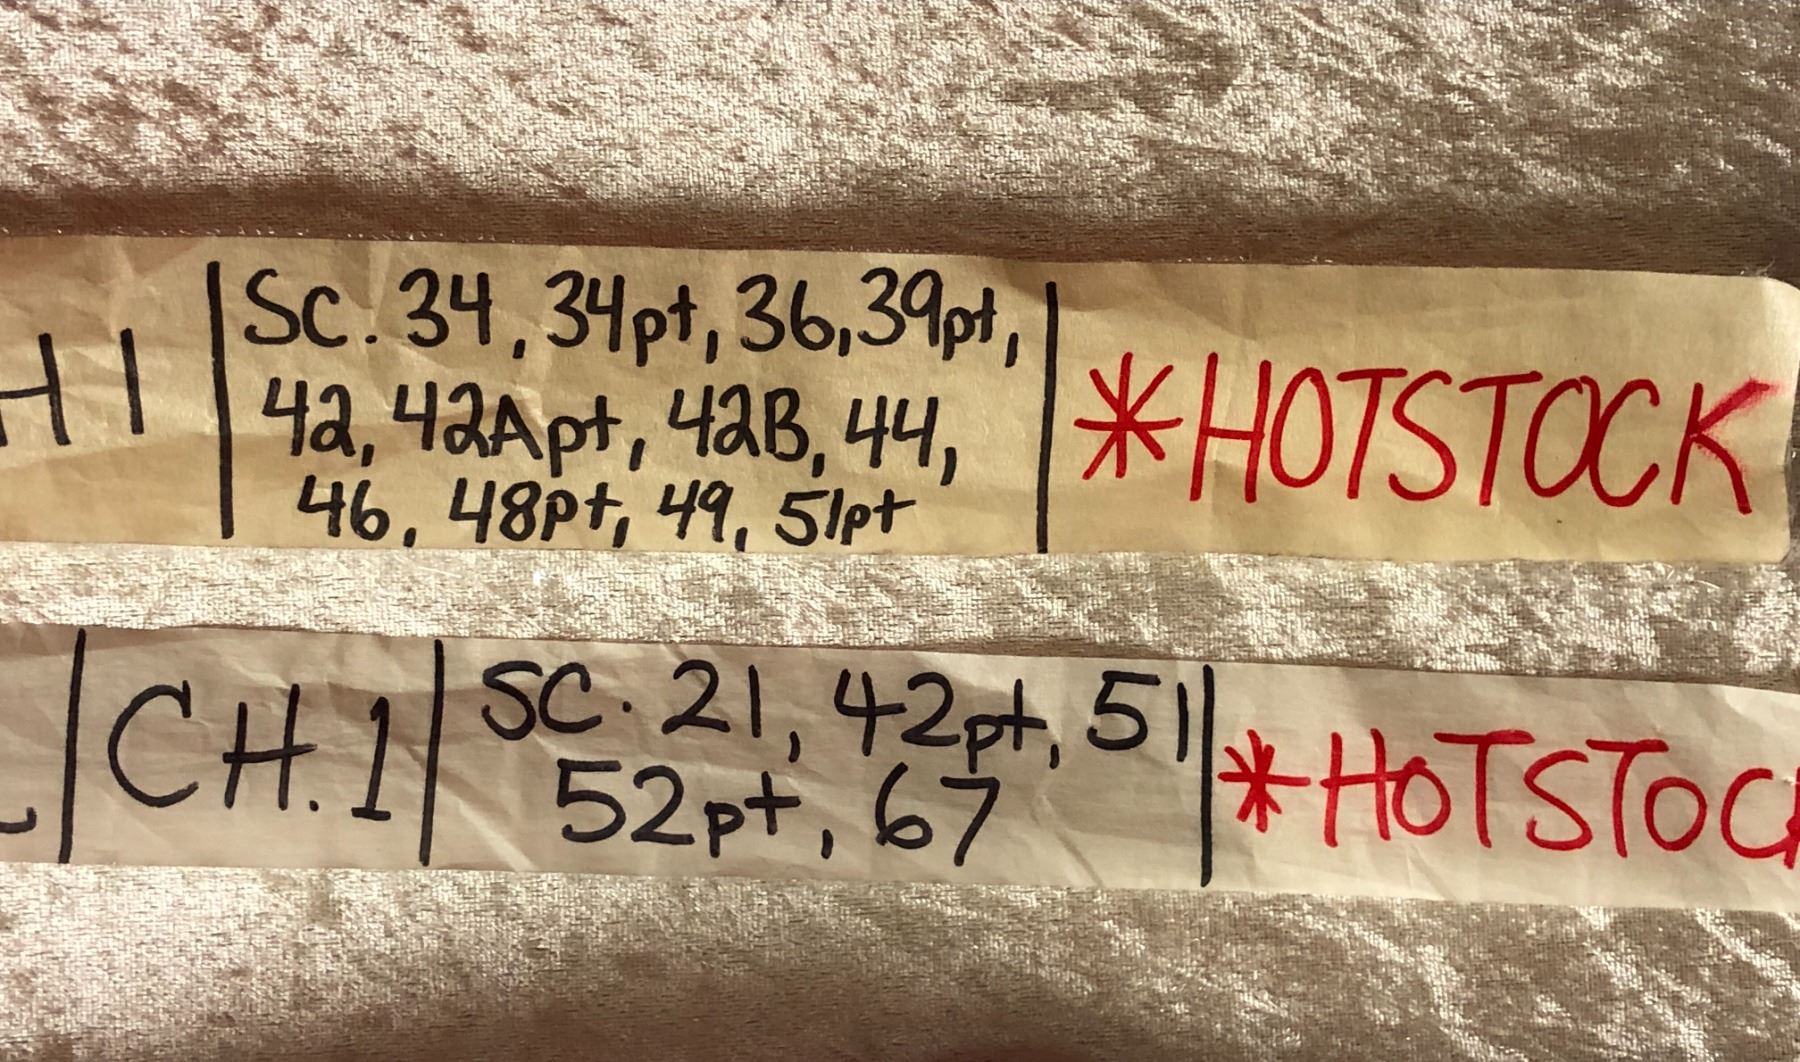 H 1 | SC. 34, 34pt, 36, 39pt, | *HOTSTOCK
42, 42Apt, 42B, 44,
46, 48pt, 49, 51pt
CH. 1 | SC. 21, 42pt, 51 | *HOTSTOC
52pt, 67